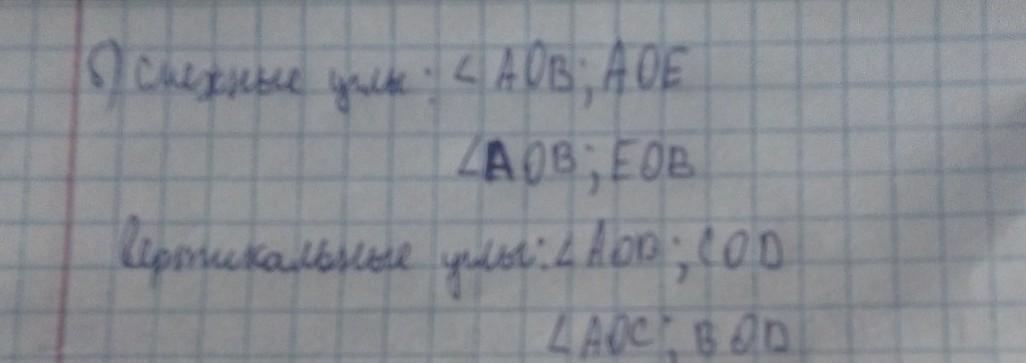 б) Смежные углы: ∠AOB; AOE
∠AOB; EOB
Вертикальные углы: ∠AOB; COD
∠AOC; BOD